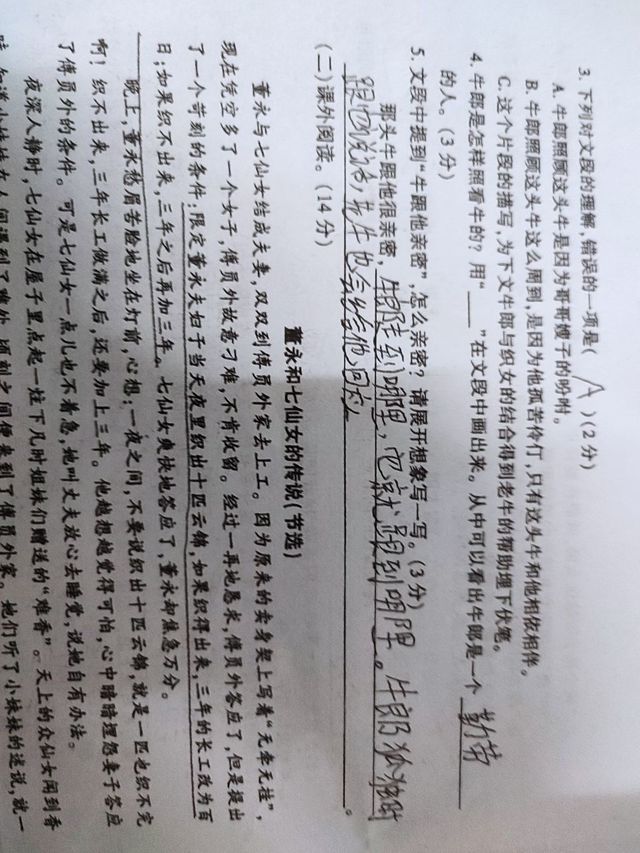 3. 下列对文段的理解,错误的一项是( A )(2分)
A. 牛郎照顾这头牛是因为哥哥嫂子的吩咐。
B. 牛郎照顾这头牛这么周到,是因为他孤苦伶仃,只有这头牛和他相依相伴。
C. 这个片段的描写,为下文牛郎与织女的结合得到老牛的帮助埋下伏笔。
4. 牛郎是怎样照看牛的?用“____”在文段中画出来。从中可以看出牛郎是一个 勤劳
的人。(3分)
5. 文段中提到“牛跟他亲密”,怎么亲密?请展开想象写一写。(3分)
那头牛跟他很亲密,牛郎走到哪里,它就跟到哪里。牛郎孤独时
跟它说话,老牛也会给他回应。
(二)课外阅读。(14分)
董永和七仙女的传说(节选)
董永与七仙女结成夫妻,双双到傅员外家去上工。因为原来的卖身契上写着“无牵无挂”,
现在凭空多了一个女子,傅员外故意刁难,不肯收留。经过一再地恳求,傅员外答应了,但是提出
了一个苛刻的条件:限定董永夫妇于当天夜里织出十匹云锦,如果织得出来,三年的长工改为百
日;如果织不出来,三年之后再加三年。七仙女爽快地答应了,董永却焦急万分。
晚上,董永愁眉苦脸地坐在灯前,心想:一夜之间,不要说织出十匹云锦,就是一匹也织不完
啊!织不出来,三年长工做满之后,还要加上三年。他越想越觉得可怕,心中暗暗埋怨妻子答应
了傅员外的条件。可是七仙女一点儿也不着急,她叫丈夫放心去睡觉,说她自有办法。
夜深人静时,七仙女在屋子里点起一炷下凡时姐妹们赠送的“难香”。天上的众仙女闻到香
知道小妹妹在人间遇到了难处,顷刻之间便来到了傅员外家。她们听了小妹妹的述说,就一